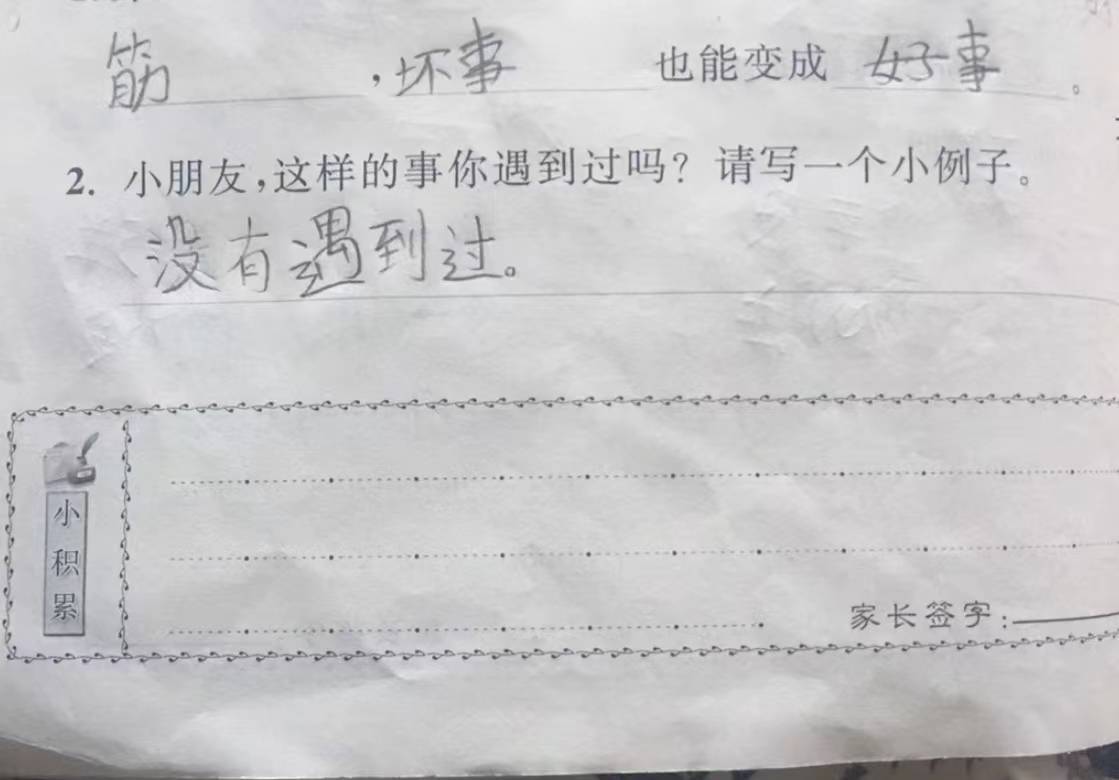 筋，坏事也能变成好事。
2. 小朋友，这样的事你遇到过吗？请写一个小例子。
没有遇到过。
小积累
家长签字：